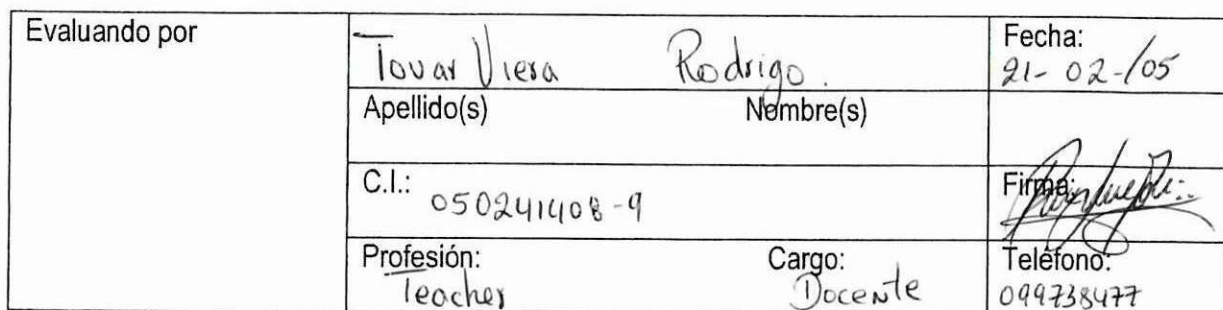 Evaluando por
Tovar Viera Rodrigo.
Fecha:
21-02-/05
Apellido(s) Nombre(s)
C.I.: 050241408-9
Firma:
Profesión: Cargo: Teléfono:
Teacher Docente 099738477